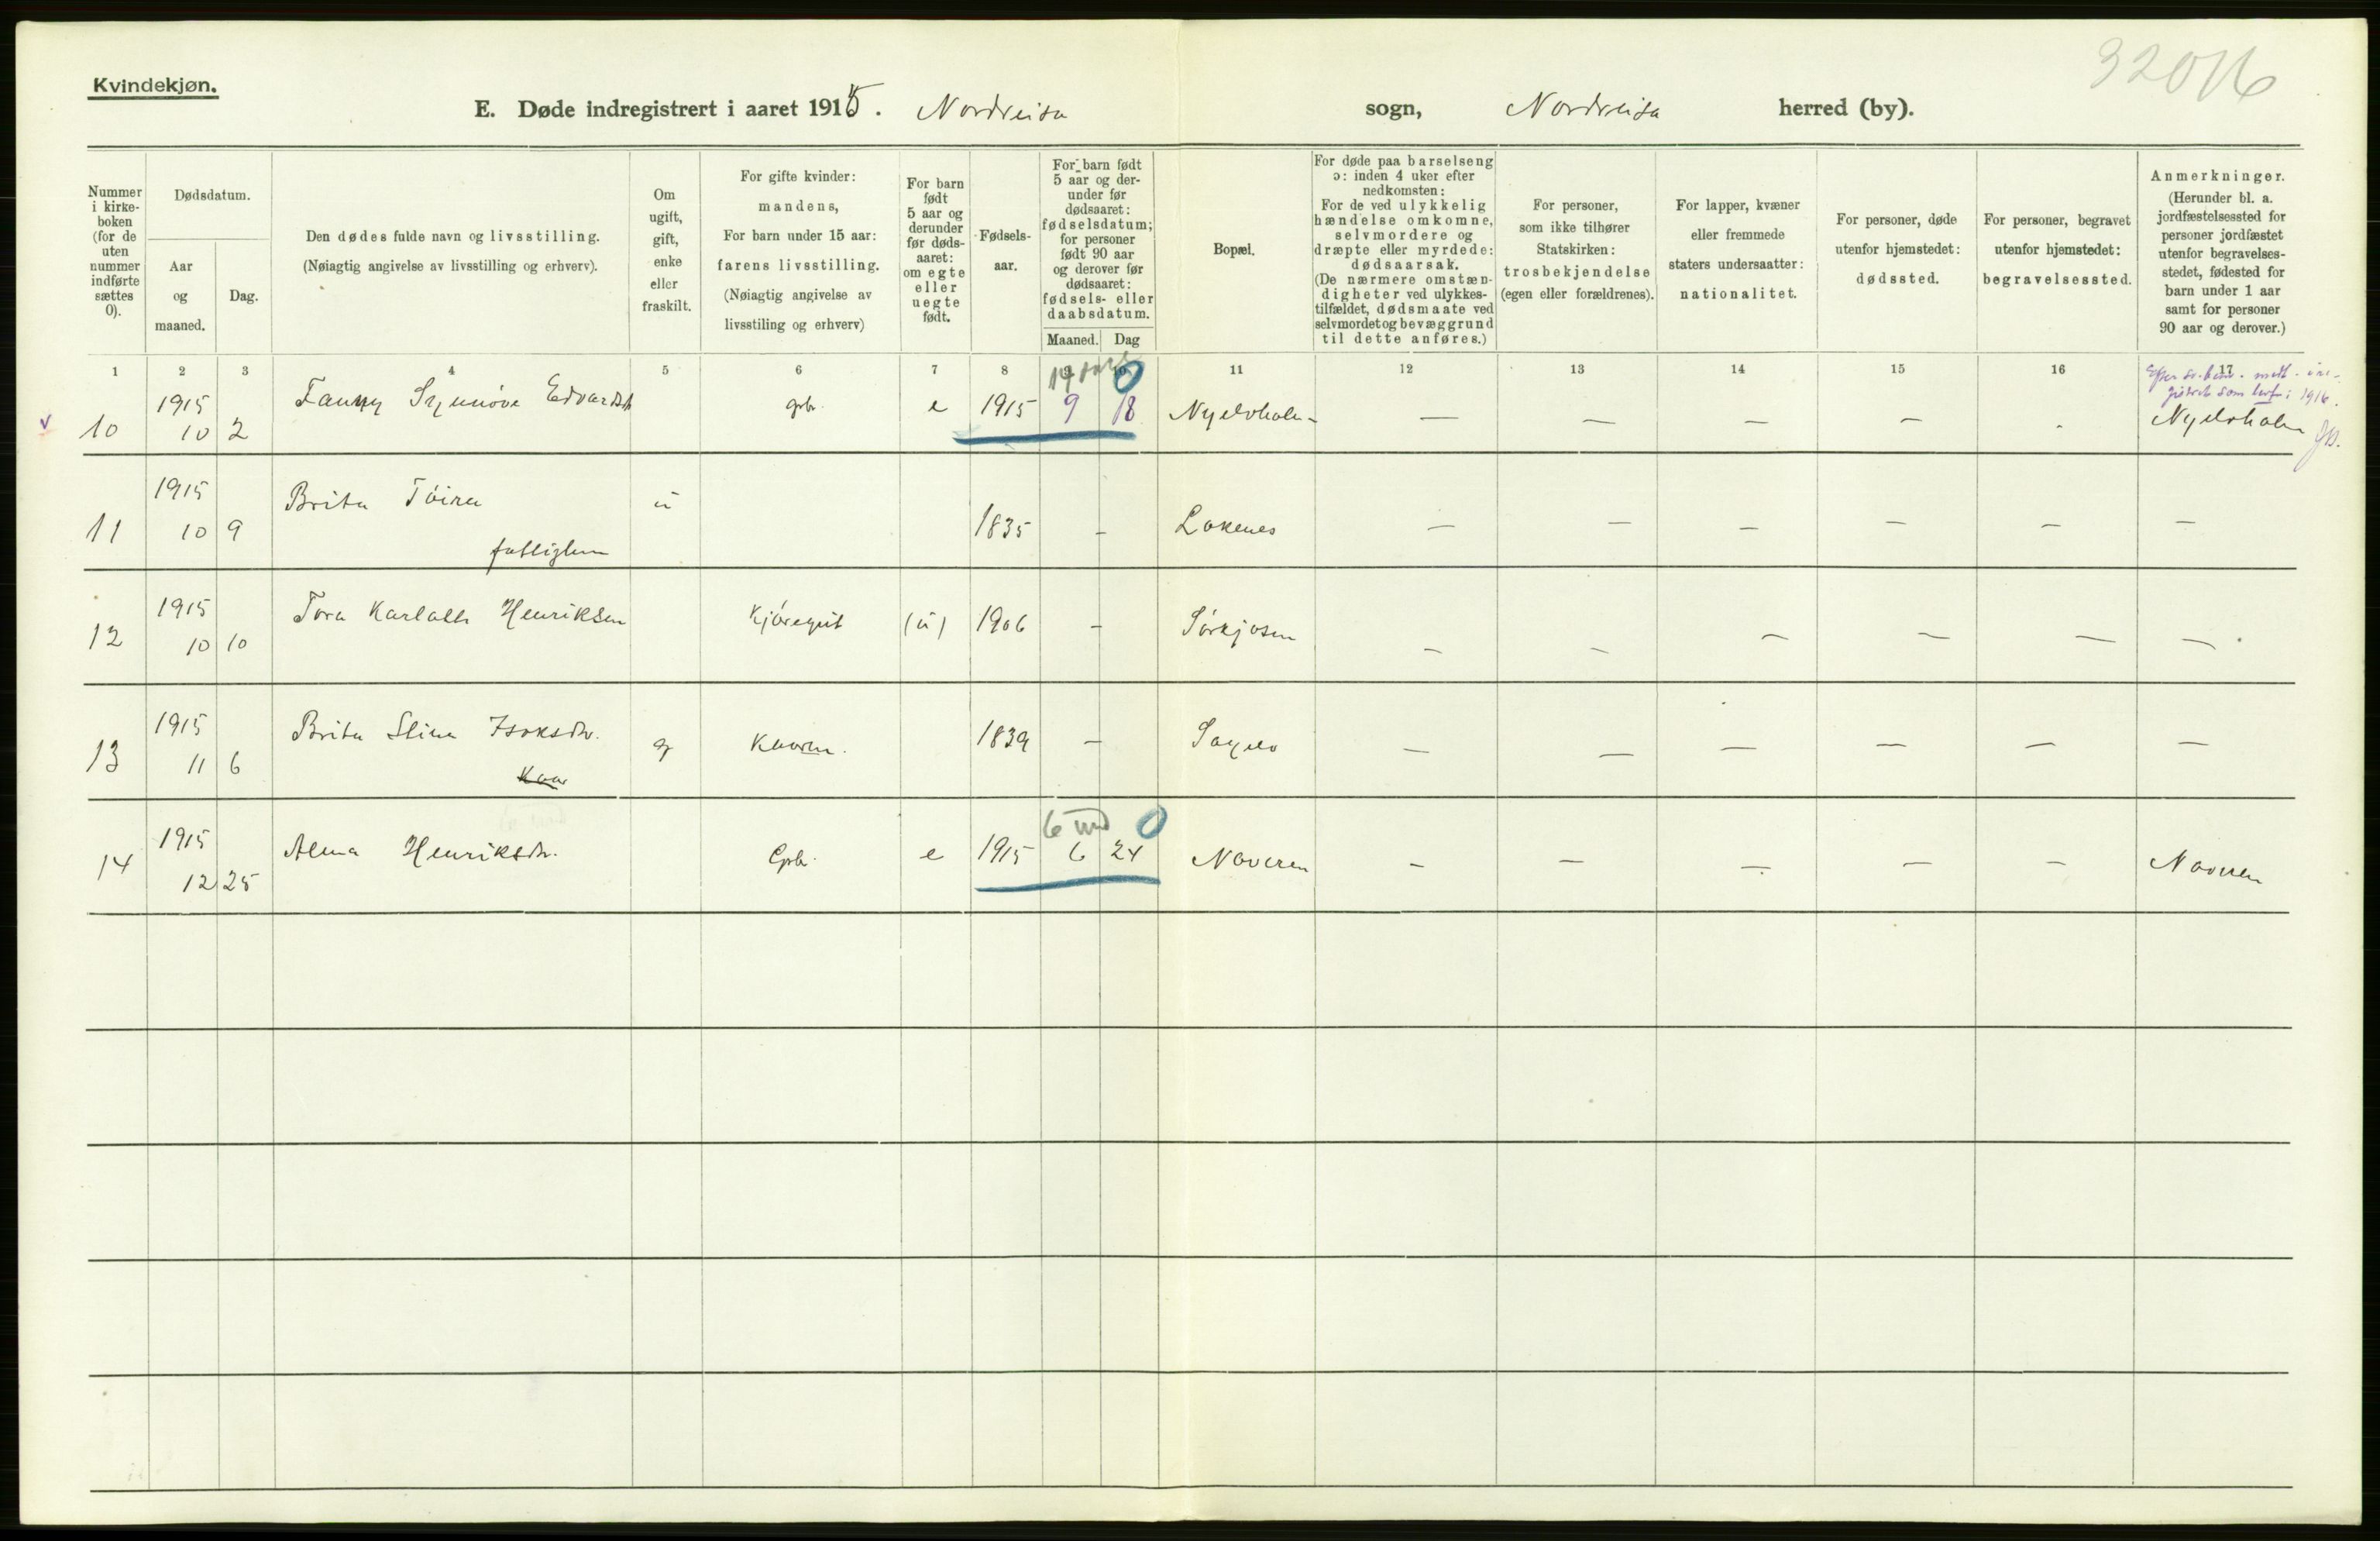 32016
Kvindekjøn.
E. Døde indregistrert i aaret 1915. Nordreisa sogn, Nordreisa herred (by).
Nummer i kirke-boken (for de uten nummer indførte sættes 0).
Dødsdatum.
Aar og maaned.
Dag.
Den dødes fulde navn og livsstilling.
(Nøiagtig angivelse av livsstilling og erhverv).
Om ugift, gift, enke eller fraskilt.
For gifte kvinder:
mandens,
For barn under 15 aar:
farens livsstilling.
(Nøiagtig angivelse av
livsstiling og erhverv)
For barn født 5 aar og derunder før døds-aaret: om egte eller uegte født.
Fødsels-aar.
For barn født 5 aar og der-under før dødsaaret: fødselsdatum; for personer født 90 aar og derover før dødsaaret: fødsels- eller daabsdatum.
Maaned. Dag
Bopæl.
For døde paa barselseng
ɔ: inden 4 uker efter
nedkomsten:
For de ved ulykkelig
hændelse omkomne,
selvmordere og
dræpte eller myrdede:
dødsaarsak.
(De nærmere omstæn-
digheter ved ulykkes-
tilfældet, dødsmaate ved
selvmordet og bevæggrund
til dette anføres.)
For personer,
som ikke tilhører
Statskirken:
trosbekjendelse
(egen eller forældrenes).
For lapper, kvæner
eller fremmede
staters undersaatter:
nationalitet.
For personer, døde
utenfor hjemstedet:
dødssted.
For personer, begravet
utenfor hjemstedet:
begravelsessted.
Anmerkninger.
(Herunder bl. a.
jordfæstelsessted for
personer jordfæstet
utenfor begravelses-
stedet, fødested for
barn under 1 aar
samt for personer
90 aar og derover.)
1 2 3 4 5 6 7 8 9 10 11 12 13 14 15 16 17
10 1915 10 2 Fanny Synnöve Edvardsd gbr. e 1915 9 18 Nyelvholm — — — — - Nyelvholm
14 0
i 1916.
11 1915 10 9 Brita Töira ü 1835 - Lokenes — — — — — —
fattiglem
12 1915 10 10 Tora Karlotte Henriksen Kjöregut (ü) 1906 - Sörkjosen — — — — — —
13 1915 11 6 Brita Stina Isaksdr. g Kaarm. 1839 - Sagelv — — — — — —
Kaar
14 1915 12 25 Alma Henriksdr. Gbr. e 1915 6 24 Naveren — — — — — Naveren
6 md 0